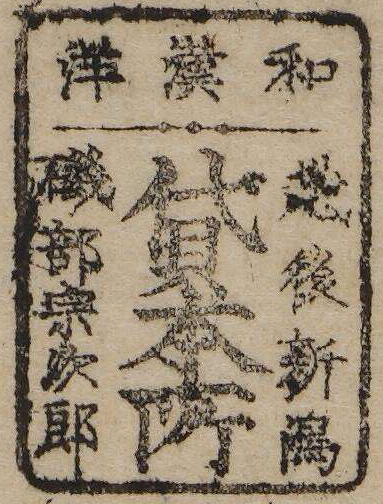 和漢洋
越後新潟
貸本所
磯部宗次郎